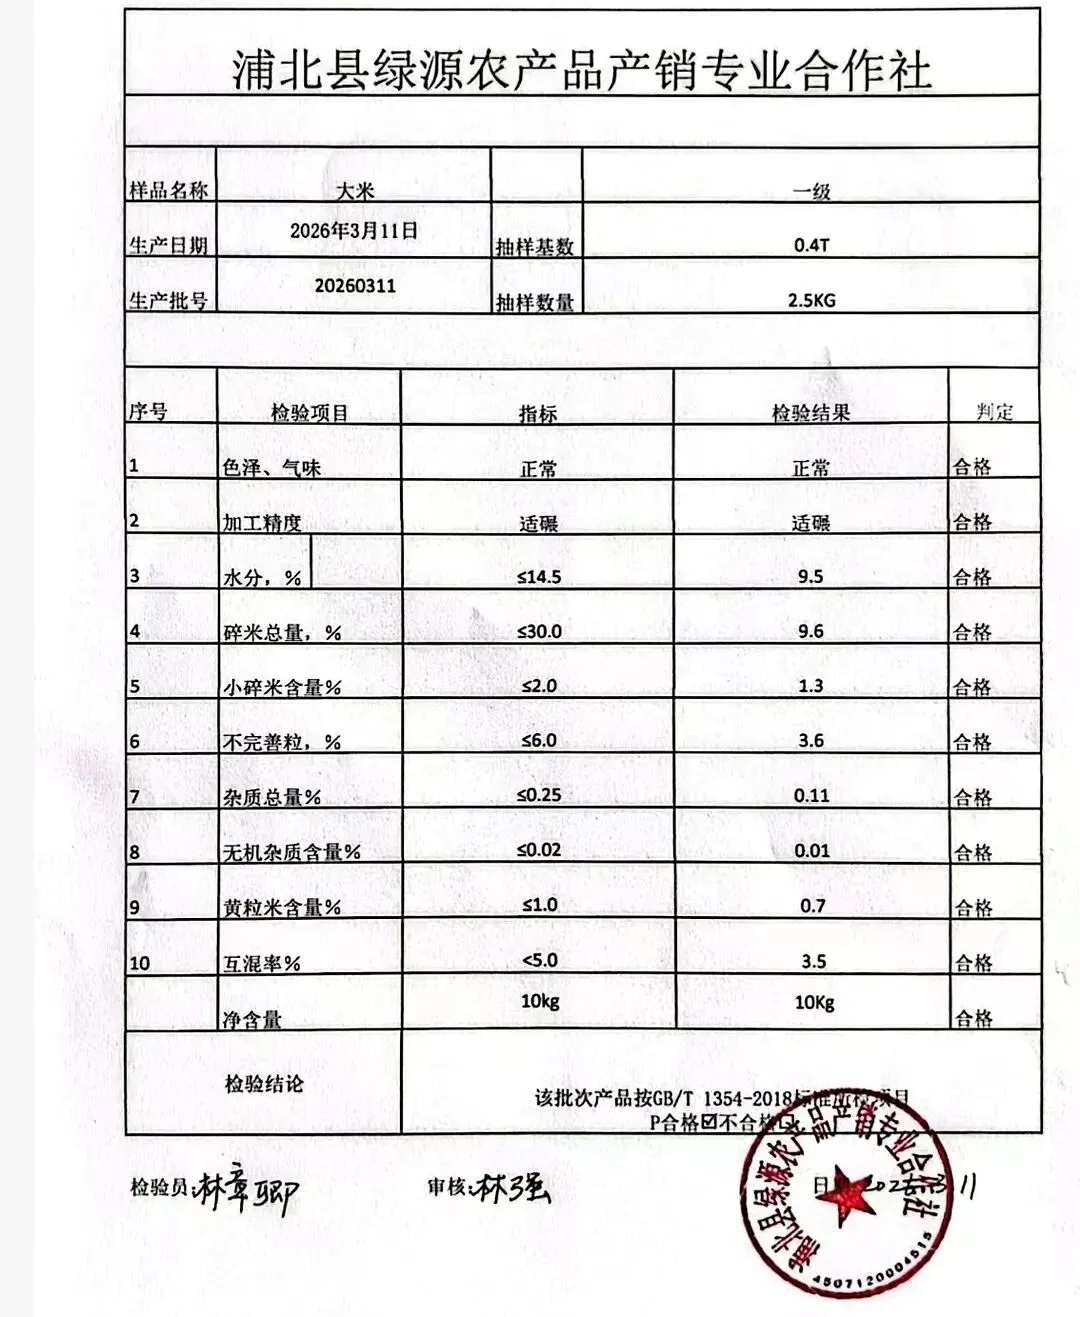 浦北县绿源农产品产销专业合作社
样品名称 大米 一级
生产日期 2026年3月11日 抽样基数 0.4T
生产批号 20260311 抽样数量 2.5KG
序号 检验项目 指标 检验结果 判定
1 色泽、气味 正常 正常 合格
2 加工精度 适碾 适碾 合格
3 水分，% ≤14.5 9.5 合格
4 碎米总量，% ≤30.0 9.6 合格
5 小碎米含量% ≤2.0 1.3 合格
6 不完善粒，% ≤6.0 3.6 合格
7 杂质总量% ≤0.25 0.11 合格
8 无机杂质含量% ≤0.02 0.01 合格
9 黄粒米含量% ≤1.0 0.7 合格
10 互混率% <5.0 3.5 合格
净含量 10kg 10Kg 合格
检验结论 该批次产品按GB/T 1354-2018标准所检项目
P合格☑不合格□
检验员: 林章卿 审核: 林强 日 11
浦北县绿源农产品产销专业合作社
4507120004515